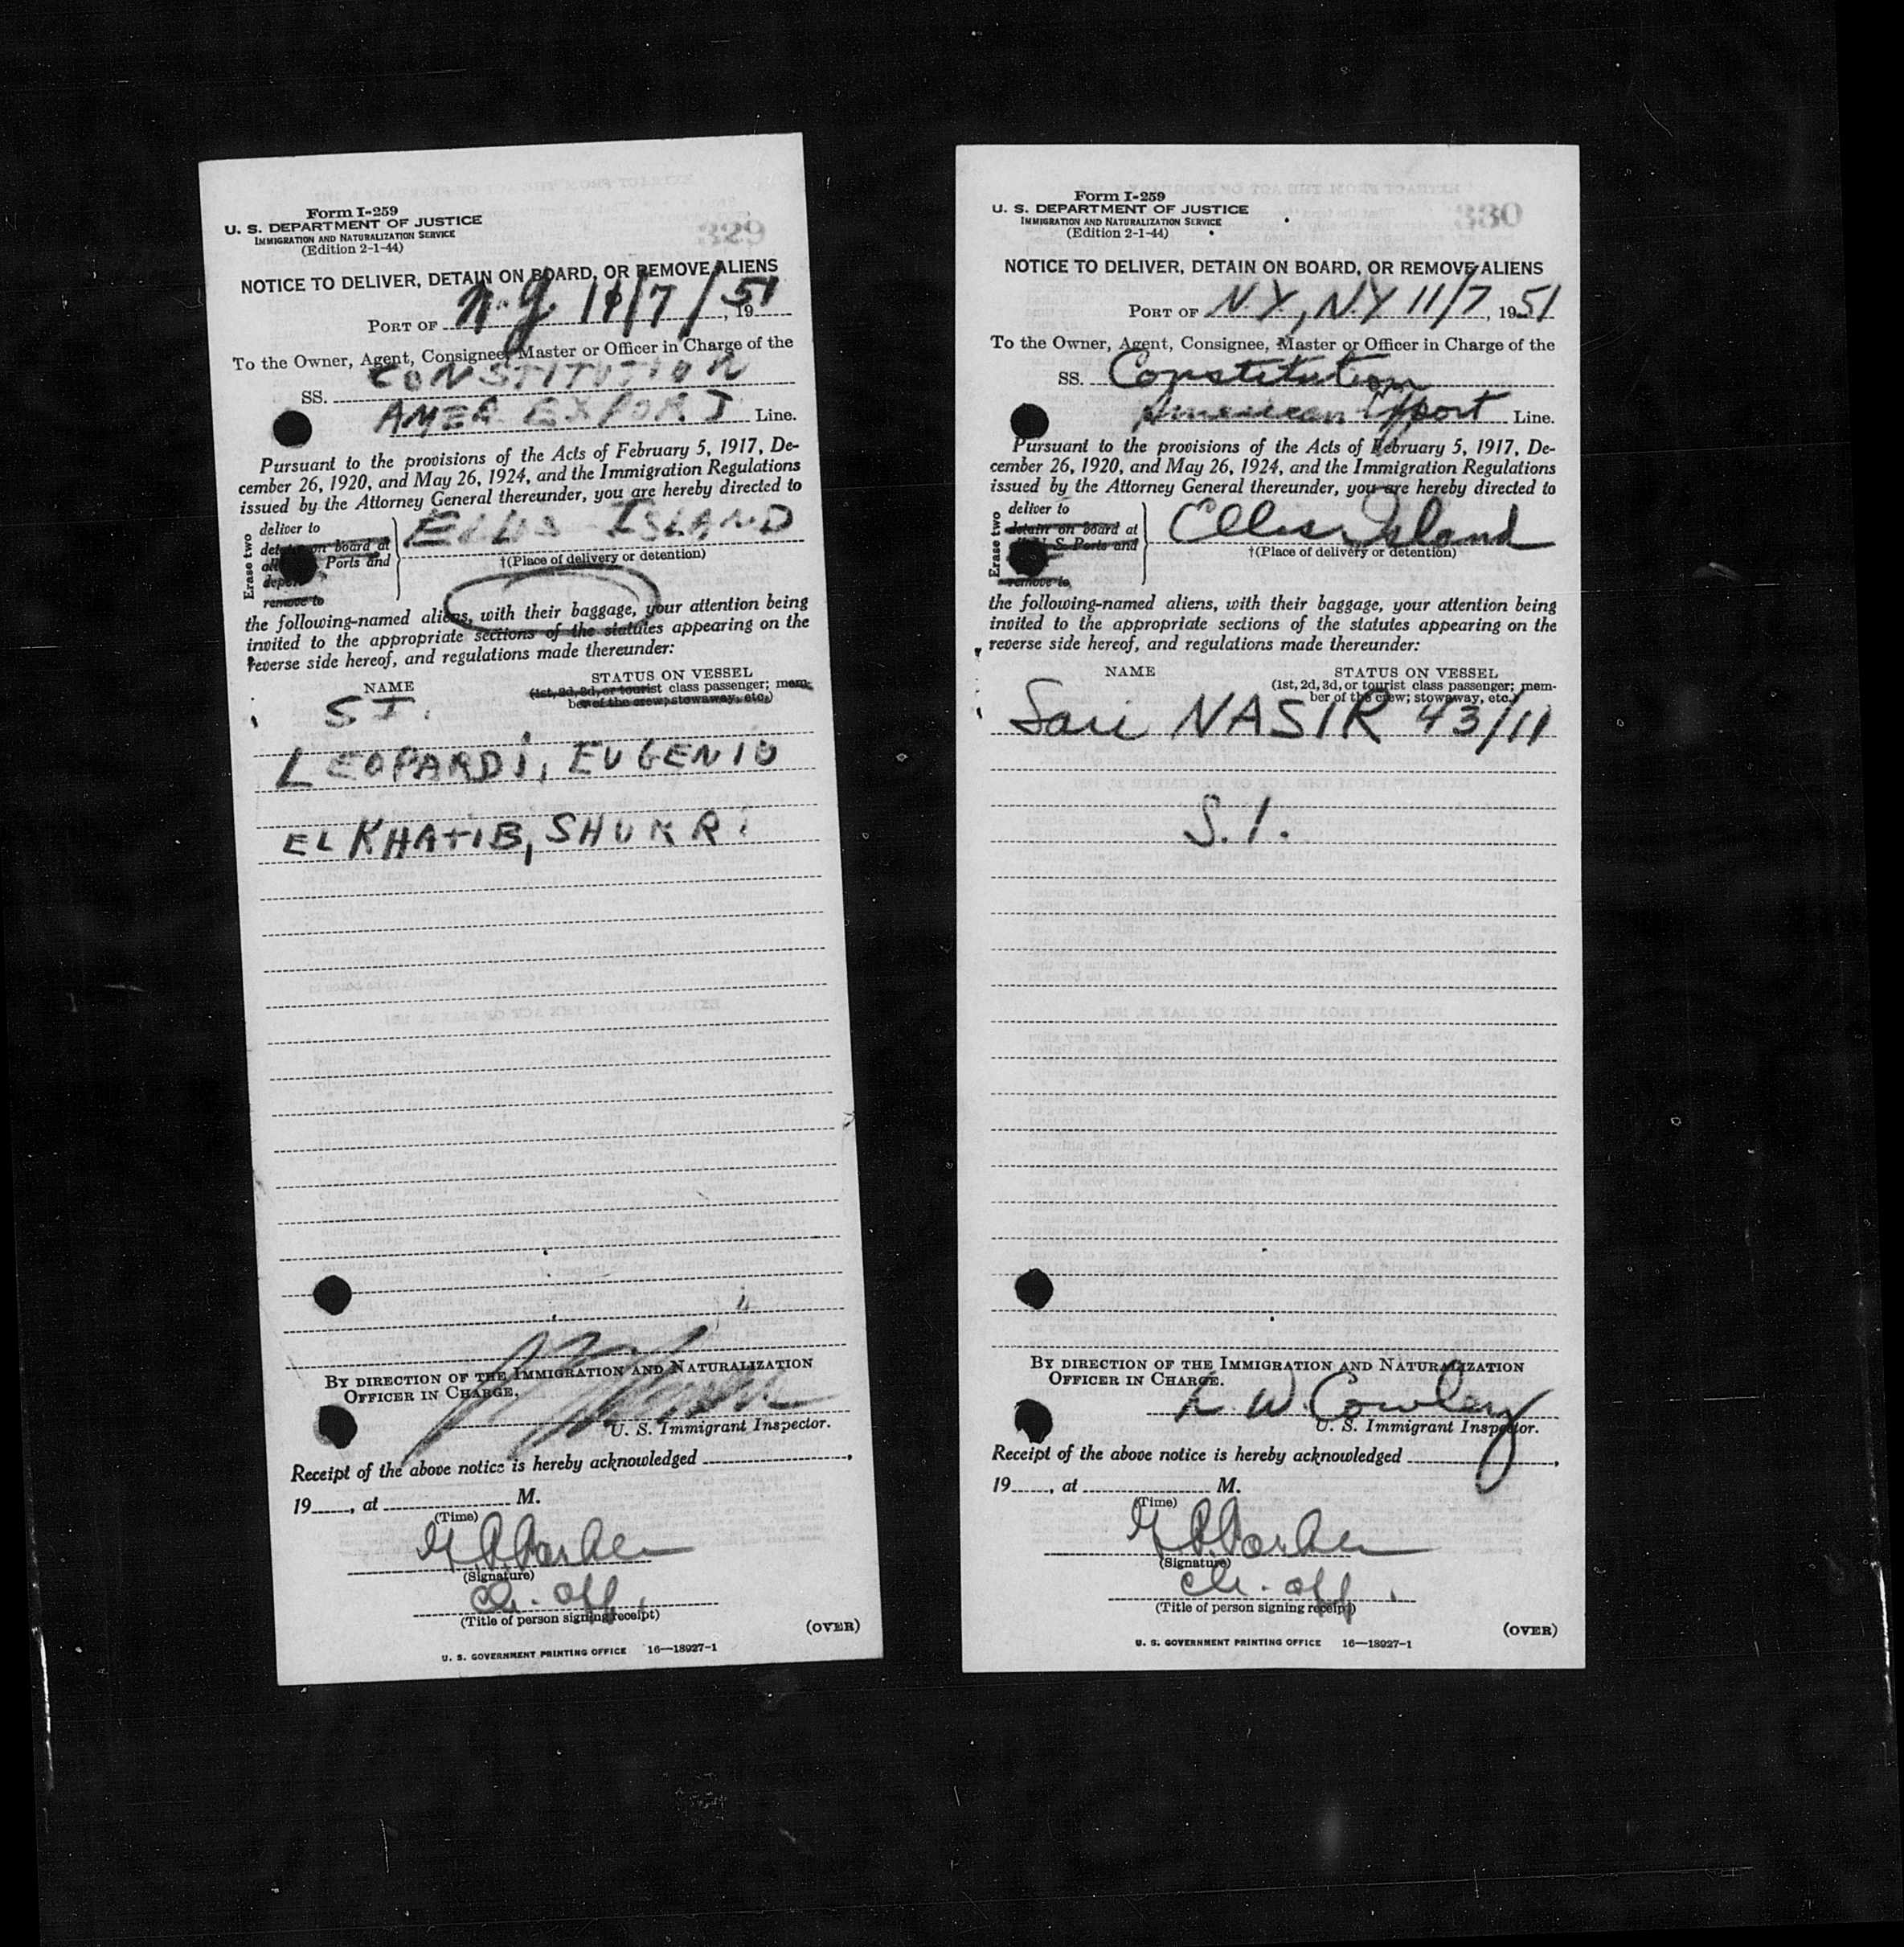 Form I-259
U. S. DEPARTMENT OF JUSTICE
IMMIGRATION AND NATURALIZATION SERVICE
(Edition 2-1-44)
329
NOTICE TO DELIVER, DETAIN ON BOARD, OR REMOVE ALIENS
PORT OF N.Y. 11/7/, 1951
To the Owner, Agent, Consignee, Master or Officer in Charge of the
SS. CONSTITUTION
AMER EXPORT Line.
Pursuant to the provisions of the Acts of February 5, 1917, De-
cember 26, 1920, and May 26, 1924, and the Immigration Regulations
issued by the Attorney General thereunder, you are hereby directed to
Erase two
deliver to
detain on board at
Ports and
remove to
ELLIS ISLAND
†(Place of delivery or detention)
the following-named aliens, with their baggage, your attention being
invited to the appropriate sections of the statutes appearing on the
reverse side hereof, and regulations made thereunder:
NAME
STATUS ON VESSEL
(1st, 2d, 3d, or tourist class passenger; mem-
ber of the crew; stowaway, etc.)
S I.
LEOPARDI, EUGENIO
EL KHATIB, SHUKRI
BY DIRECTION OF THE IMMIGRATION AND NATURALIZATION
OFFICER IN CHARGE.
U. S. Immigrant Inspector.
Receipt of the above notice is hereby acknowledged
19, at M.
(Time)
(Signature)
Ch. Off.
(Title of person signing receipt)
(OVER)
U. S. GOVERNMENT PRINTING OFFICE 16—18927-1
Form I-259
U. S. DEPARTMENT OF JUSTICE
IMMIGRATION AND NATURALIZATION SERVICE
(Edition 2-1-44)
330
NOTICE TO DELIVER, DETAIN ON BOARD, OR REMOVE ALIENS
PORT OF N.Y., N.Y 11/7, 1951
To the Owner, Agent, Consignee, Master or Officer in Charge of the
SS. Constitution
American Export Line.
Pursuant to the provisions of the Acts of February 5, 1917, De-
cember 26, 1920, and May 26, 1924, and the Immigration Regulations
issued by the Attorney General thereunder, you are hereby directed to
Erase two
deliver to
detain on board at
U. S. Ports and
remove to
Ellis Island
†(Place of delivery or detention)
the following-named aliens, with their baggage, your attention being
invited to the appropriate sections of the statutes appearing on the
reverse side hereof, and regulations made thereunder:
NAME
STATUS ON VESSEL
(1st, 2d, 3d, or tourist class passenger; mem-
ber of the crew; stowaway, etc.)
Sari NASIR 43/11
S.I.
BY DIRECTION OF THE IMMIGRATION AND NATURALIZATION
OFFICER IN CHARGE.
L. W. Cowley
U. S. Immigrant Inspector.
Receipt of the above notice is hereby acknowledged
19, at M.
(Time)
(Signature)
Ch. Off.
(Title of person signing receipt)
(OVER)
U. S. GOVERNMENT PRINTING OFFICE 16—18927-1